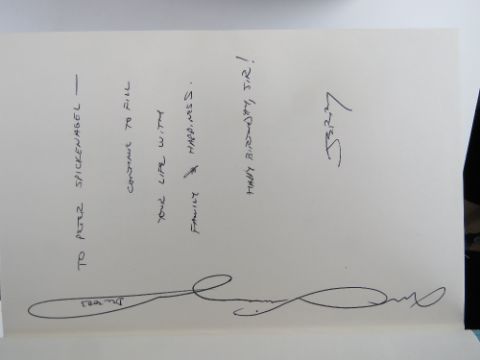 TO PETER SPICKENAGEL —
CONTINUE TO FILL
YOUR LIFE WITH
FAMILY & HAPPINESS.
HAPPY BIRTHDAY, SIR!
JERRY